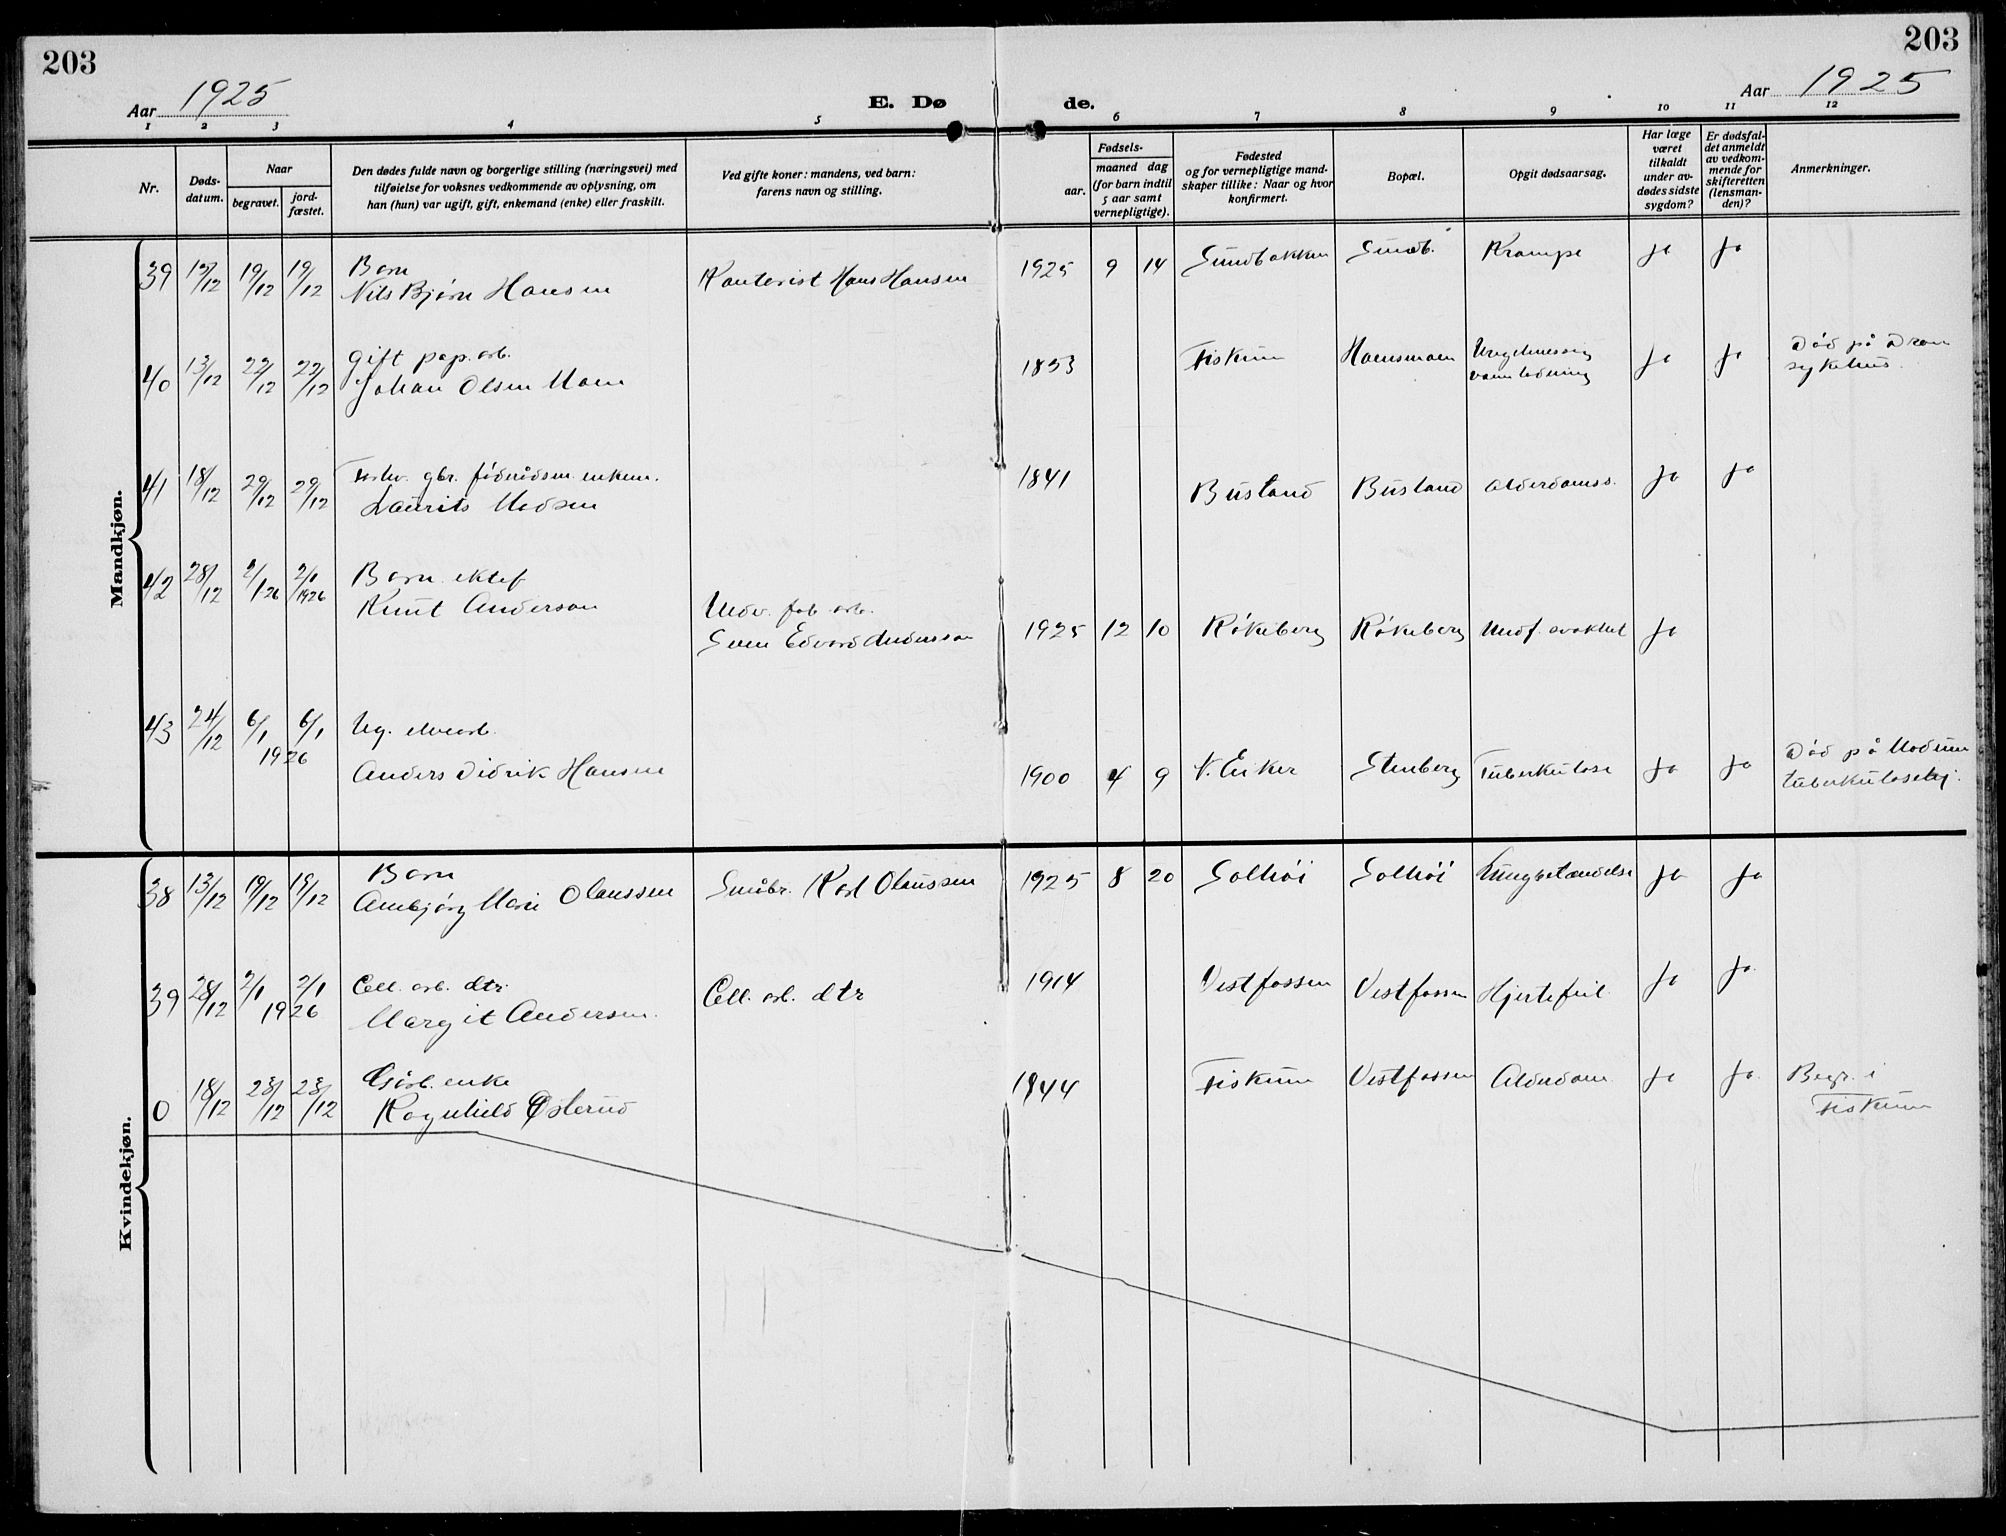 203
203
Aar 1925
E. Dø de.
Aar 1925
1 2 3 4 5 6 7 8 9 10 11 12
Nr.
Døds-
datum.
Naar
begravet.
jord-
fæstet.
Den dødes fulde navn og borgerlige stilling (næringsvei) med
tilføielse for voksnes vedkommende av oplysning, om
han (hun) var ugift, gift, enkemand (enke) eller fraskilt.
Ved gifte koner: mandens, ved barn:
farens navn og stilling.
Fødsels-
aar.
maaned dag
(for barn indtil
5 aar samt
vernepligtige).
Fødested
og for vernepligtige mand-
skaper tillike: Naar og hvor
konfirmert.
Bopæl.
Opgit dødsaarsag.
Har læge
været
tilkaldt
under av-
dødes sidste
sygdom?
Er dødsfal-
det anmeldt
av vedkom-
mende for
skifteretten
(lensman-
den)?
Anmerkninger.
Mandkjøn.
39 /12 19/12 19/12 Barn
Nils Bjørn Hansen Kontorist Hans Hansen 1925 9 14 Sundbakken Sundb. Krampe Ja Ja
40 13/12 22/12 22/12 Gift pap. arb.
Johan Olsen Moen 1853 Fiskum ja ja Død på Dram
sykehus.
41 18/12 29/12 29/12 gbr. enkem.
Laurits Madsen 1841 Busland Busland Alderdomss. ja ja
42 28/12 2/1 26 2/1 1926 Barn ektef
Knut Anderson Undv. fab. arb.
Sven Edvard Andersson 1925 12 10 Røkeberg Røkeberg Medf. svakhet ja
43 24/12 6/1 6/1
1926
Ug.
Anders Didrik Hansen 1900 4 9 N. Eiker Stenberg Tuberkulose ja ja Død på Modum
tuberkulosehj.
Kvindekjøn.
38 13/12 19/12 19/12 Barn
Arnbjørg Marie Olaussen Småbr. Karl Olaussen 1925 8 20 Solhøi Solhøi Lungebetændelse ja ja
39 28/12 2/1 2/1
1926
Cell. arb. dtr.
Margit Andersen. Cell. arb. dtr 1914 Vestfossen Vestfossen Hjertefeil ja ja
0 18/12 23/12 23/12 enke
Ragnhild Østerud 1844 Fiskum Vestfossen Alderdom ja ja Begr. i
Fiskum